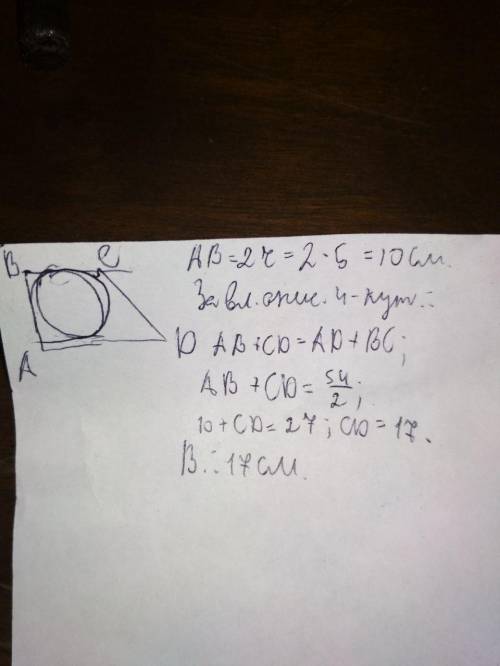 B C
A D
AB=2r=2·5=10см.
За вл. опис. 4-кут.:
AB+CD=AD+BC;
AB+CD=54/2;
10+CD=27; CD=17.
В.:17см.